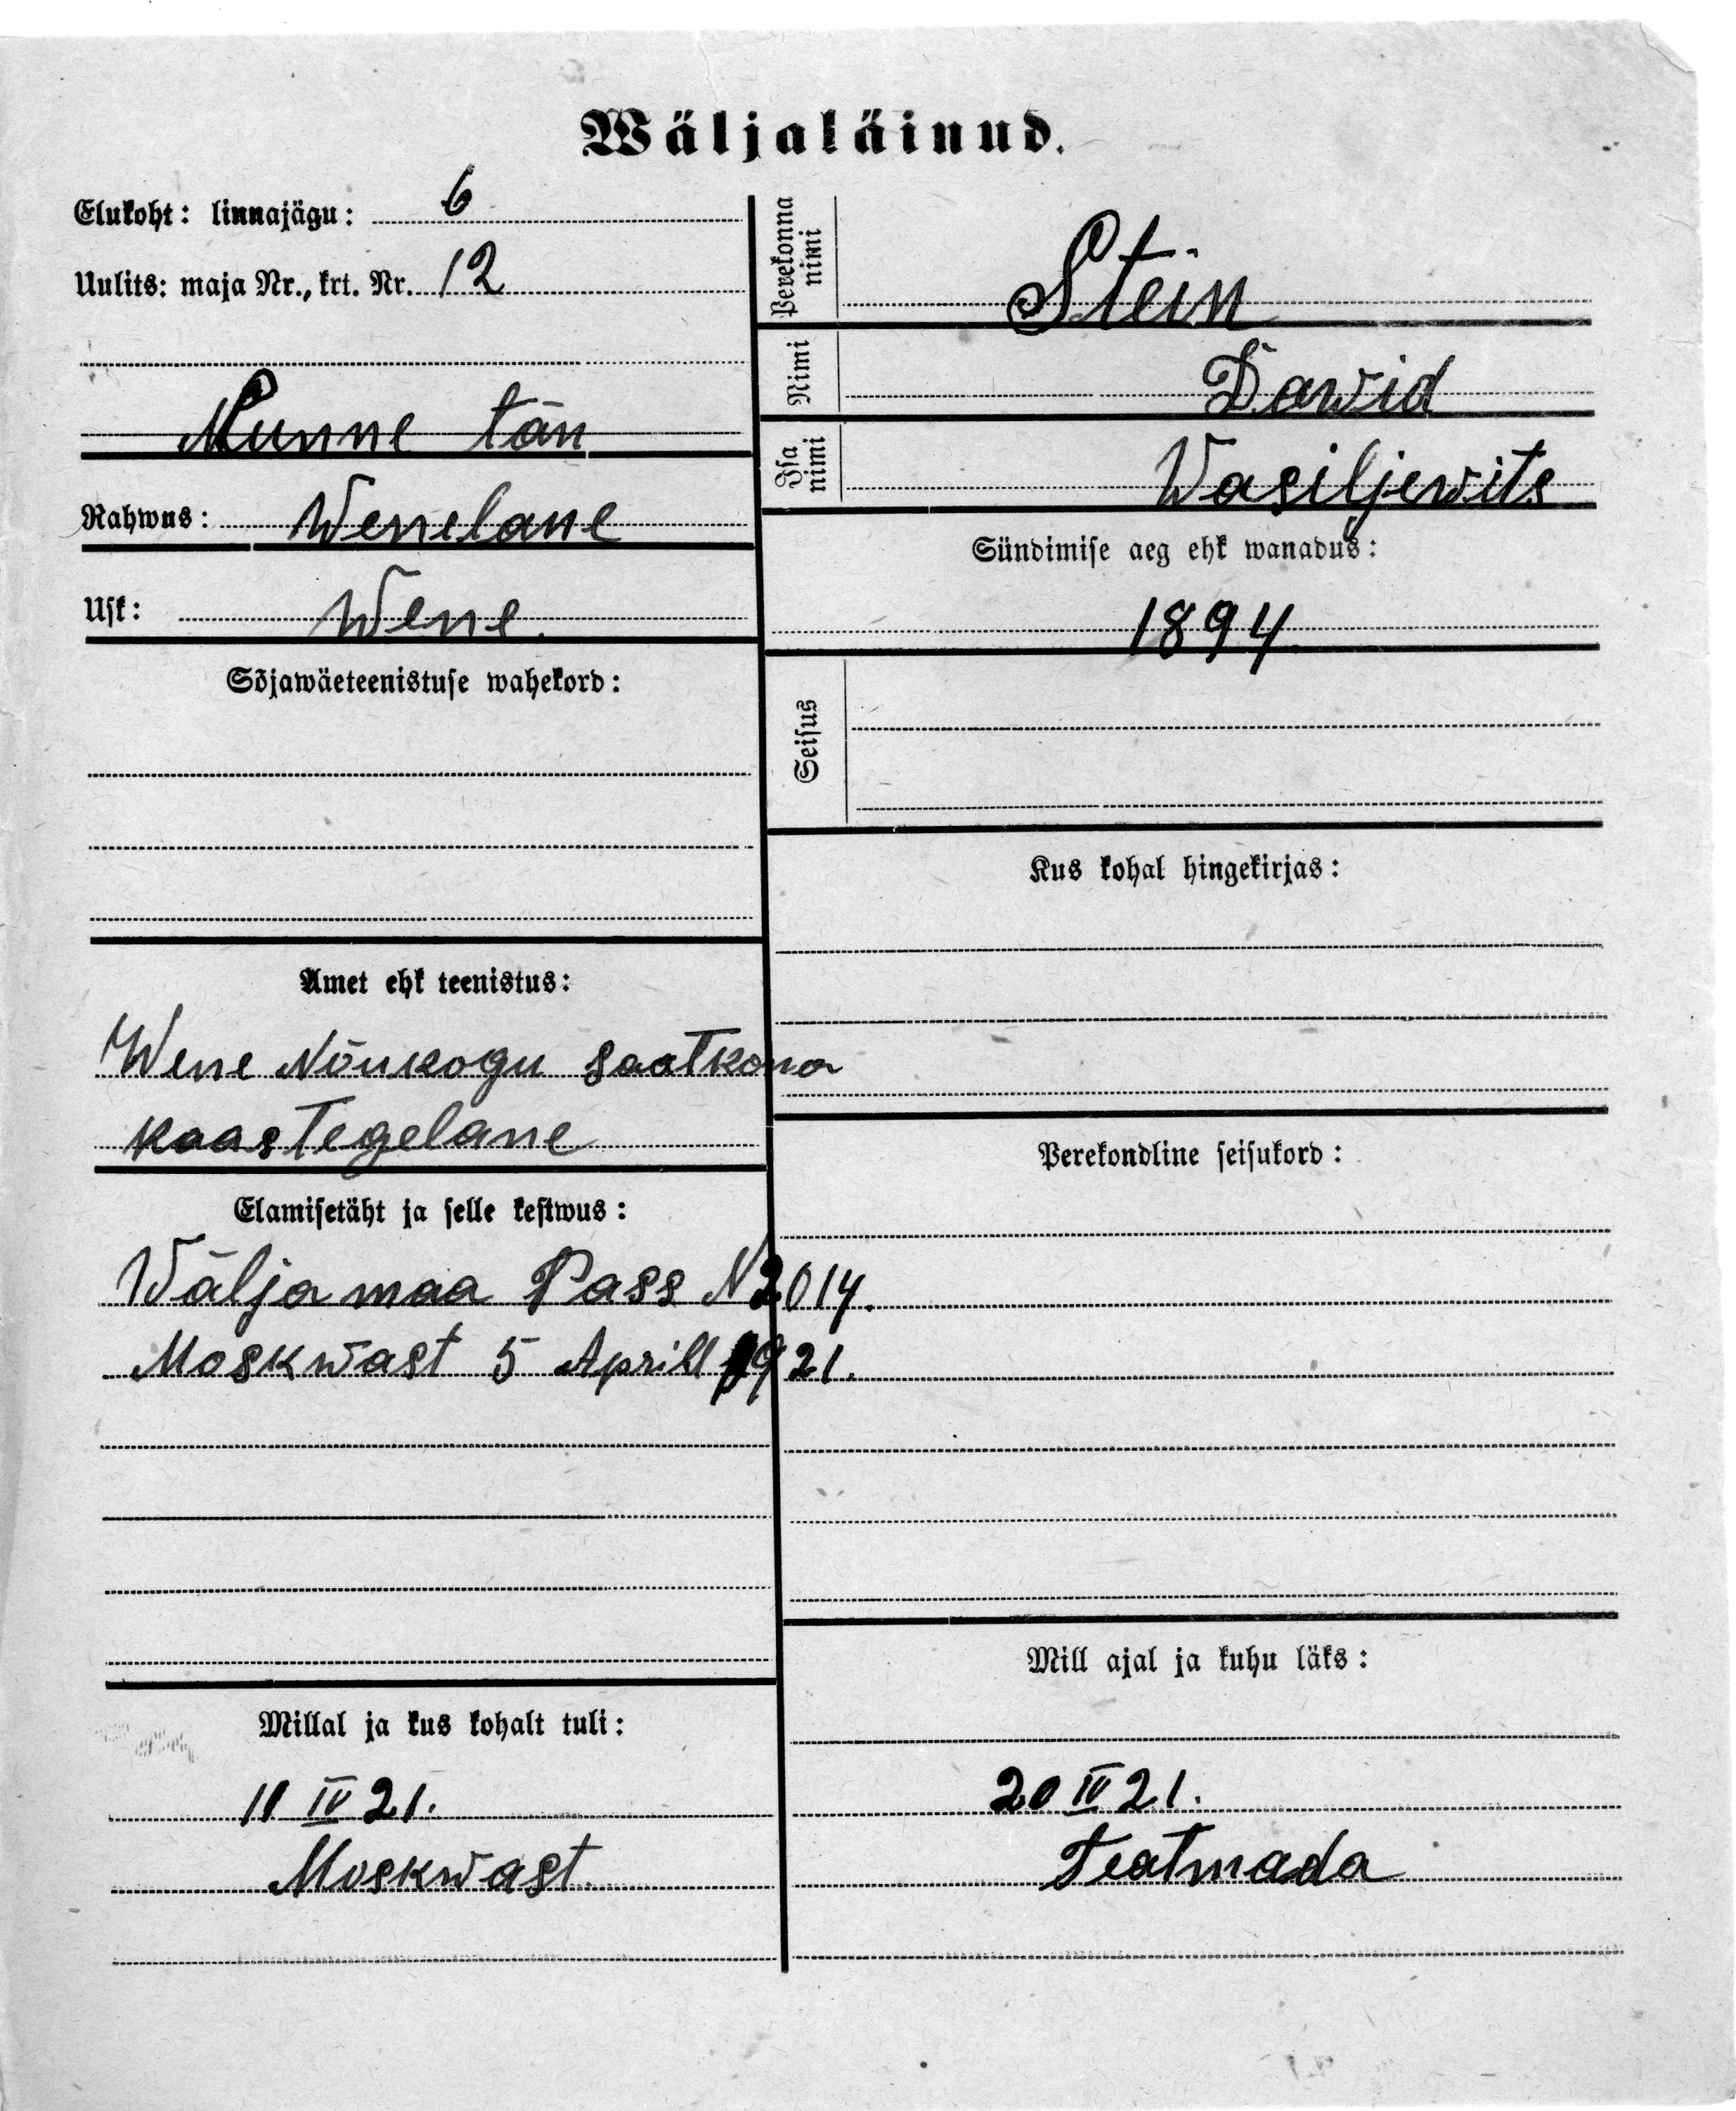 Wäljaläinud.
Elukoht: linnajägu: 6
Uulits: maja Nr., krt. Nr. 12
Munne tän
Rahwus: Wenelane
Usk: Wene.
Sõjawäeteenistuse wahekord:
Amet ehk teenistus:
Wene Nõukogu saatkona
kaastegelane
Elamisetäht ja selle kestwus:
Wälja maa Pass N 2014.
Moskwast 5 Aprill 1921.
Millal ja kus kohalt tuli:
11 IV 21.
Moskwast.
Perekonna
nimi
Stein
Nimi
Dawid
Isa
nimi
Wasiljewits
Sündimise aeg ehk wanadus:
1894.
Seisus
Kus kohal hingekirjas:
Perekondline seisukord:
Mill ajal ja kuhu läks:
20 IV 21.
Teatmada